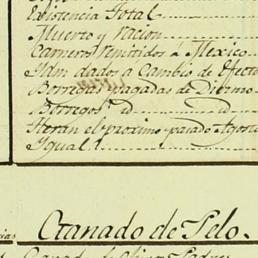 Existencia Total
Muerto y Racion
Carneros Remitidos á Mexico
Ydam dados a Cambio de Efecto
Borregas pagadas de Diezmo
Borregos d d
Heran el proximo pasado Agosto
Ygual
Ganado de Pelo.